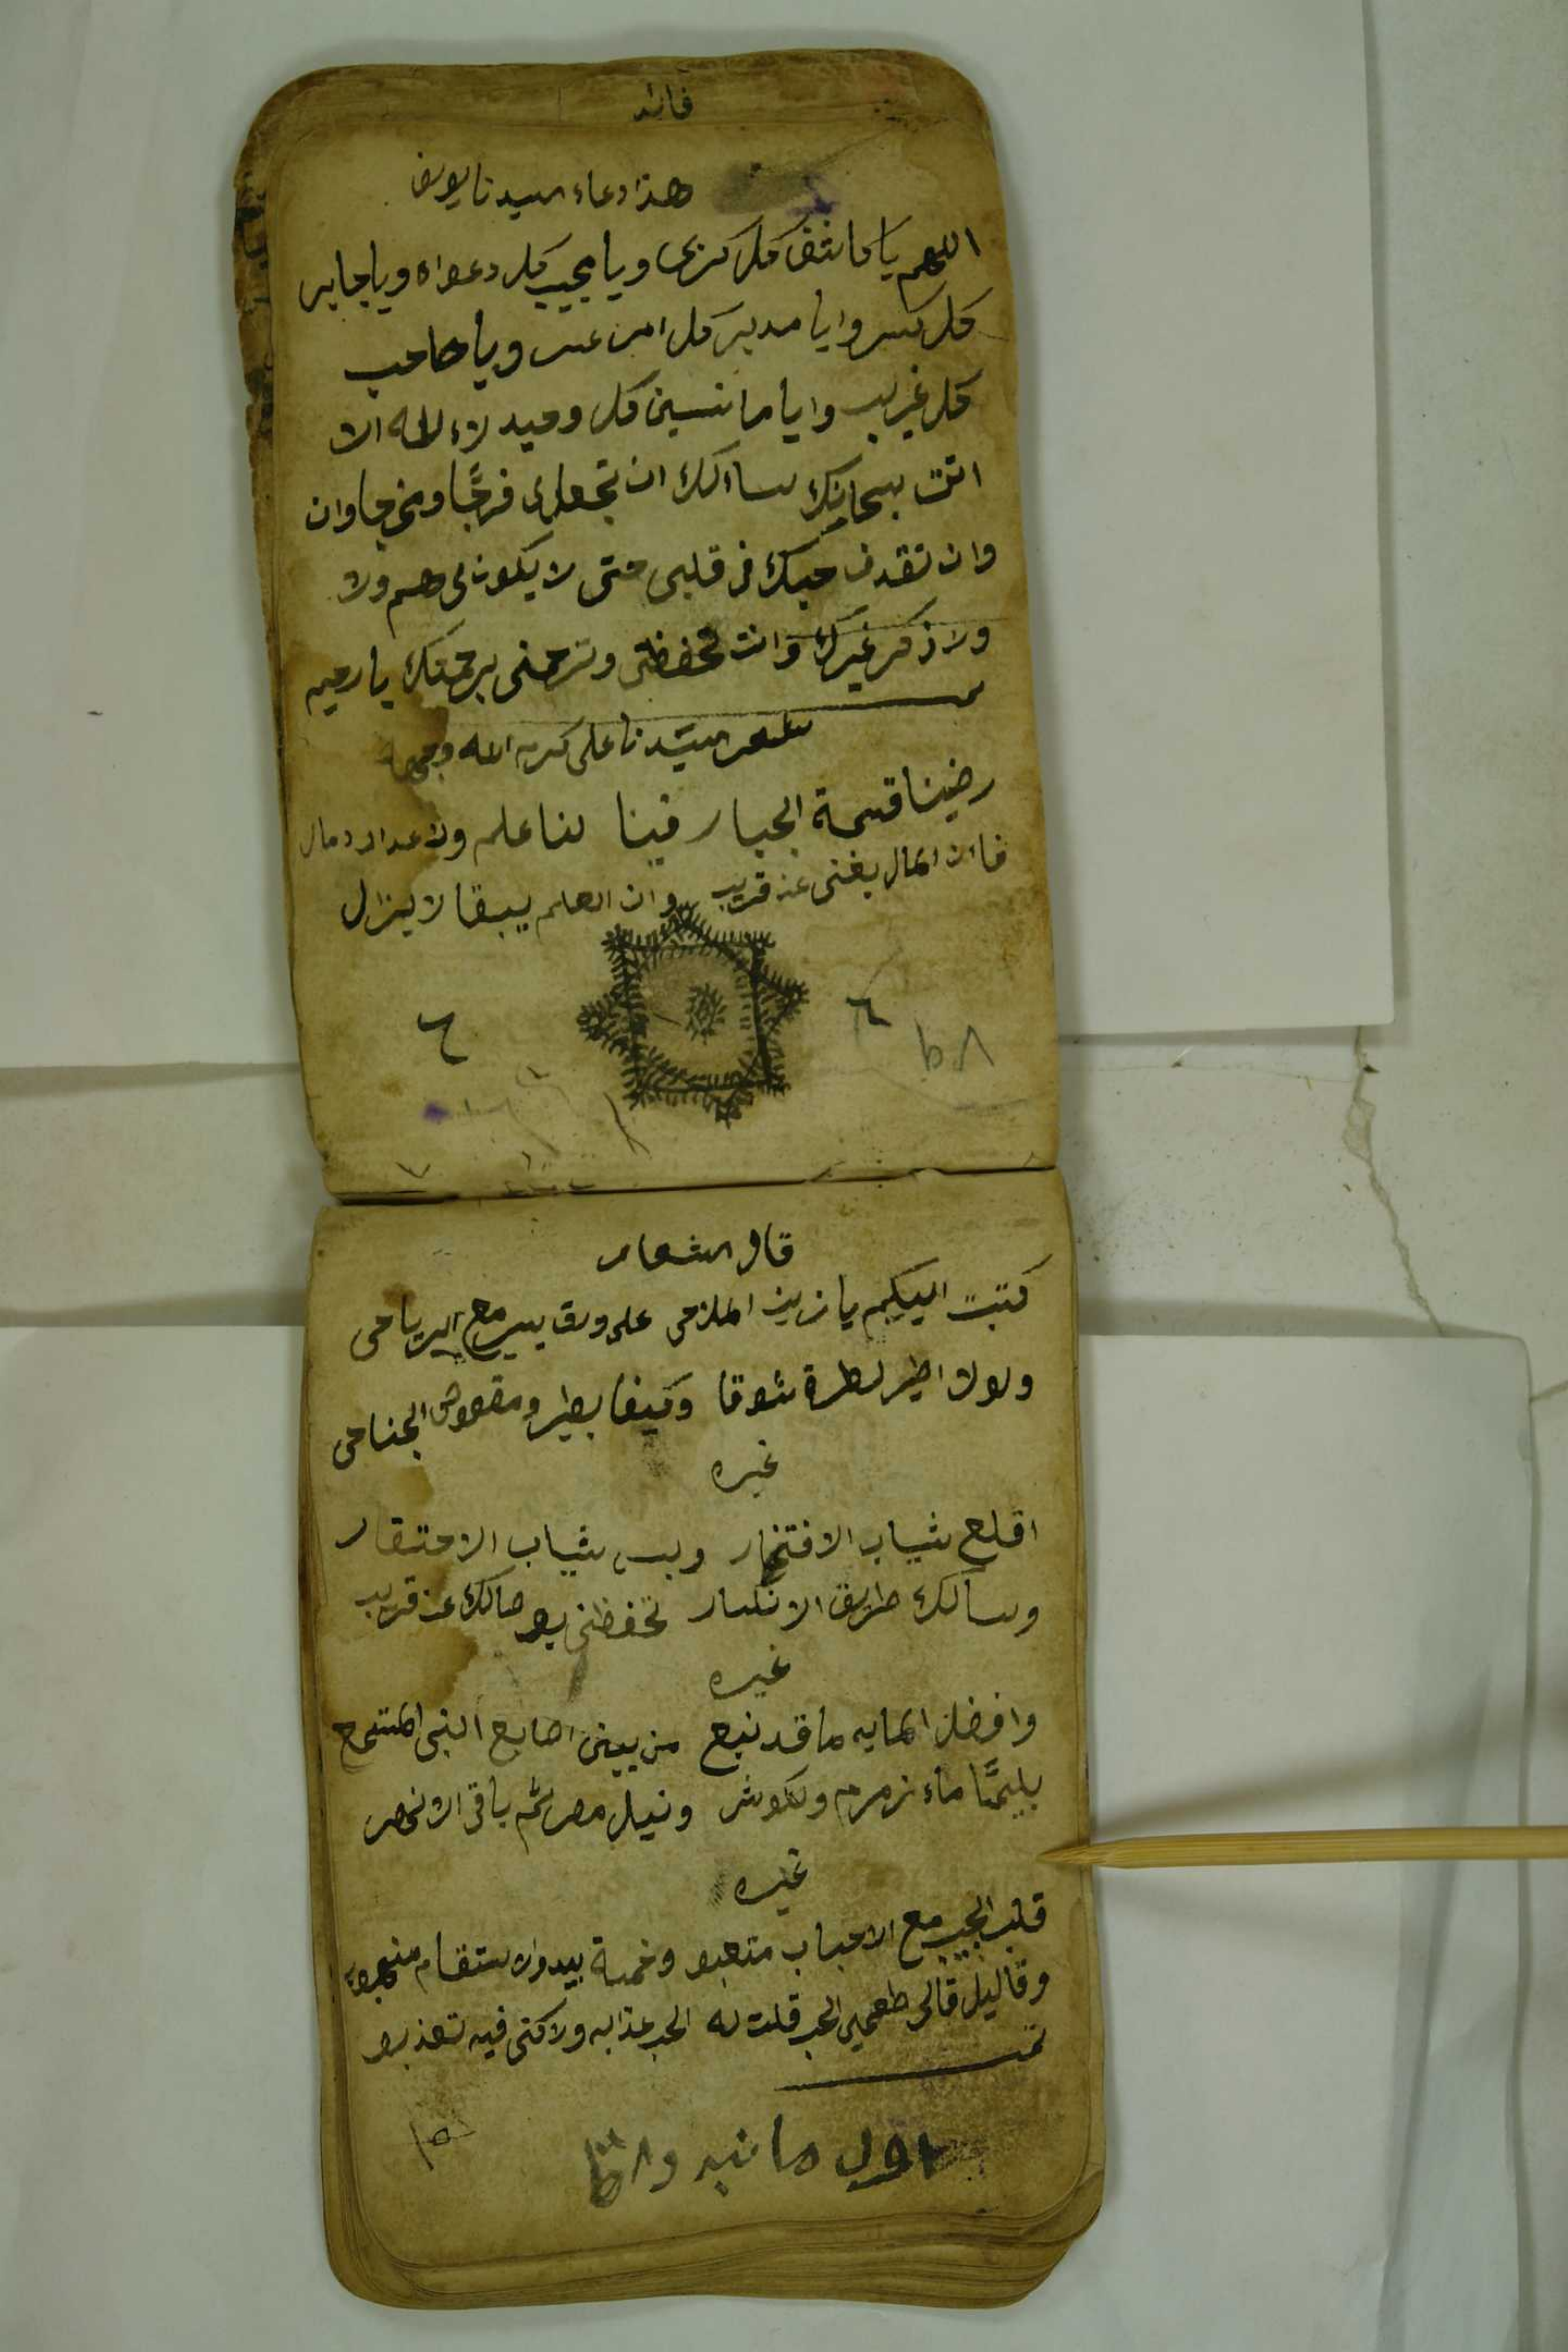 فائد
هذا دعاء السيدنا يوسف
اللهم يا كاشف كل كربى ويا مجيب كل دعواه ويا جابر
كل كسر وايا مدبر كل امر عسر ويا صاحب
كل غريب وايا مانسين كل وحيد لاء لاله الا
انت سبحانك ساالك ان تجعل لى فرجًا ومخرجا وان
وان تقدف حبك فى قلبى حتى لا يكون لى هم ولا
ولا ذكر غيرك وانت تحفظنى وترحمنى برحمتك يا رحيم
شعر السيّدنا على كرم الله وجهه
رضينا قسمة الجبار فينا لنا علم ولا عدا مال
فا ان المال يفنى عن قريب وان العلم يبقا لا يزال
٦ ٦
قال الشعار
كتبت اليكم يا زين الملاحى على ورق يسير مع الرياحى
ولولا اطير لطرة شوقا وكيفا يطير ومقصوص الجناحى
غيره
اقلع ثياب الافتخار وبس ثياب الاحتقار
وسالك طريق الانكسار تحفظنى بوصالك عن قريب
غيره
وافضل المايه ماقد نبع من بين اصابع النبى المتبع
يليهًا ماء زمزم ولكوثر ونيل مصر ثم باقى الانحصر
غيره
قلب الحب مع الاحباب متعبو وخمسة بيدوالاستقام منهبو
وقاليل قالى طعمي الحب قلت له الحب عذابه ولاكنى فيه تعذبو
تمت
اول ما نبدو